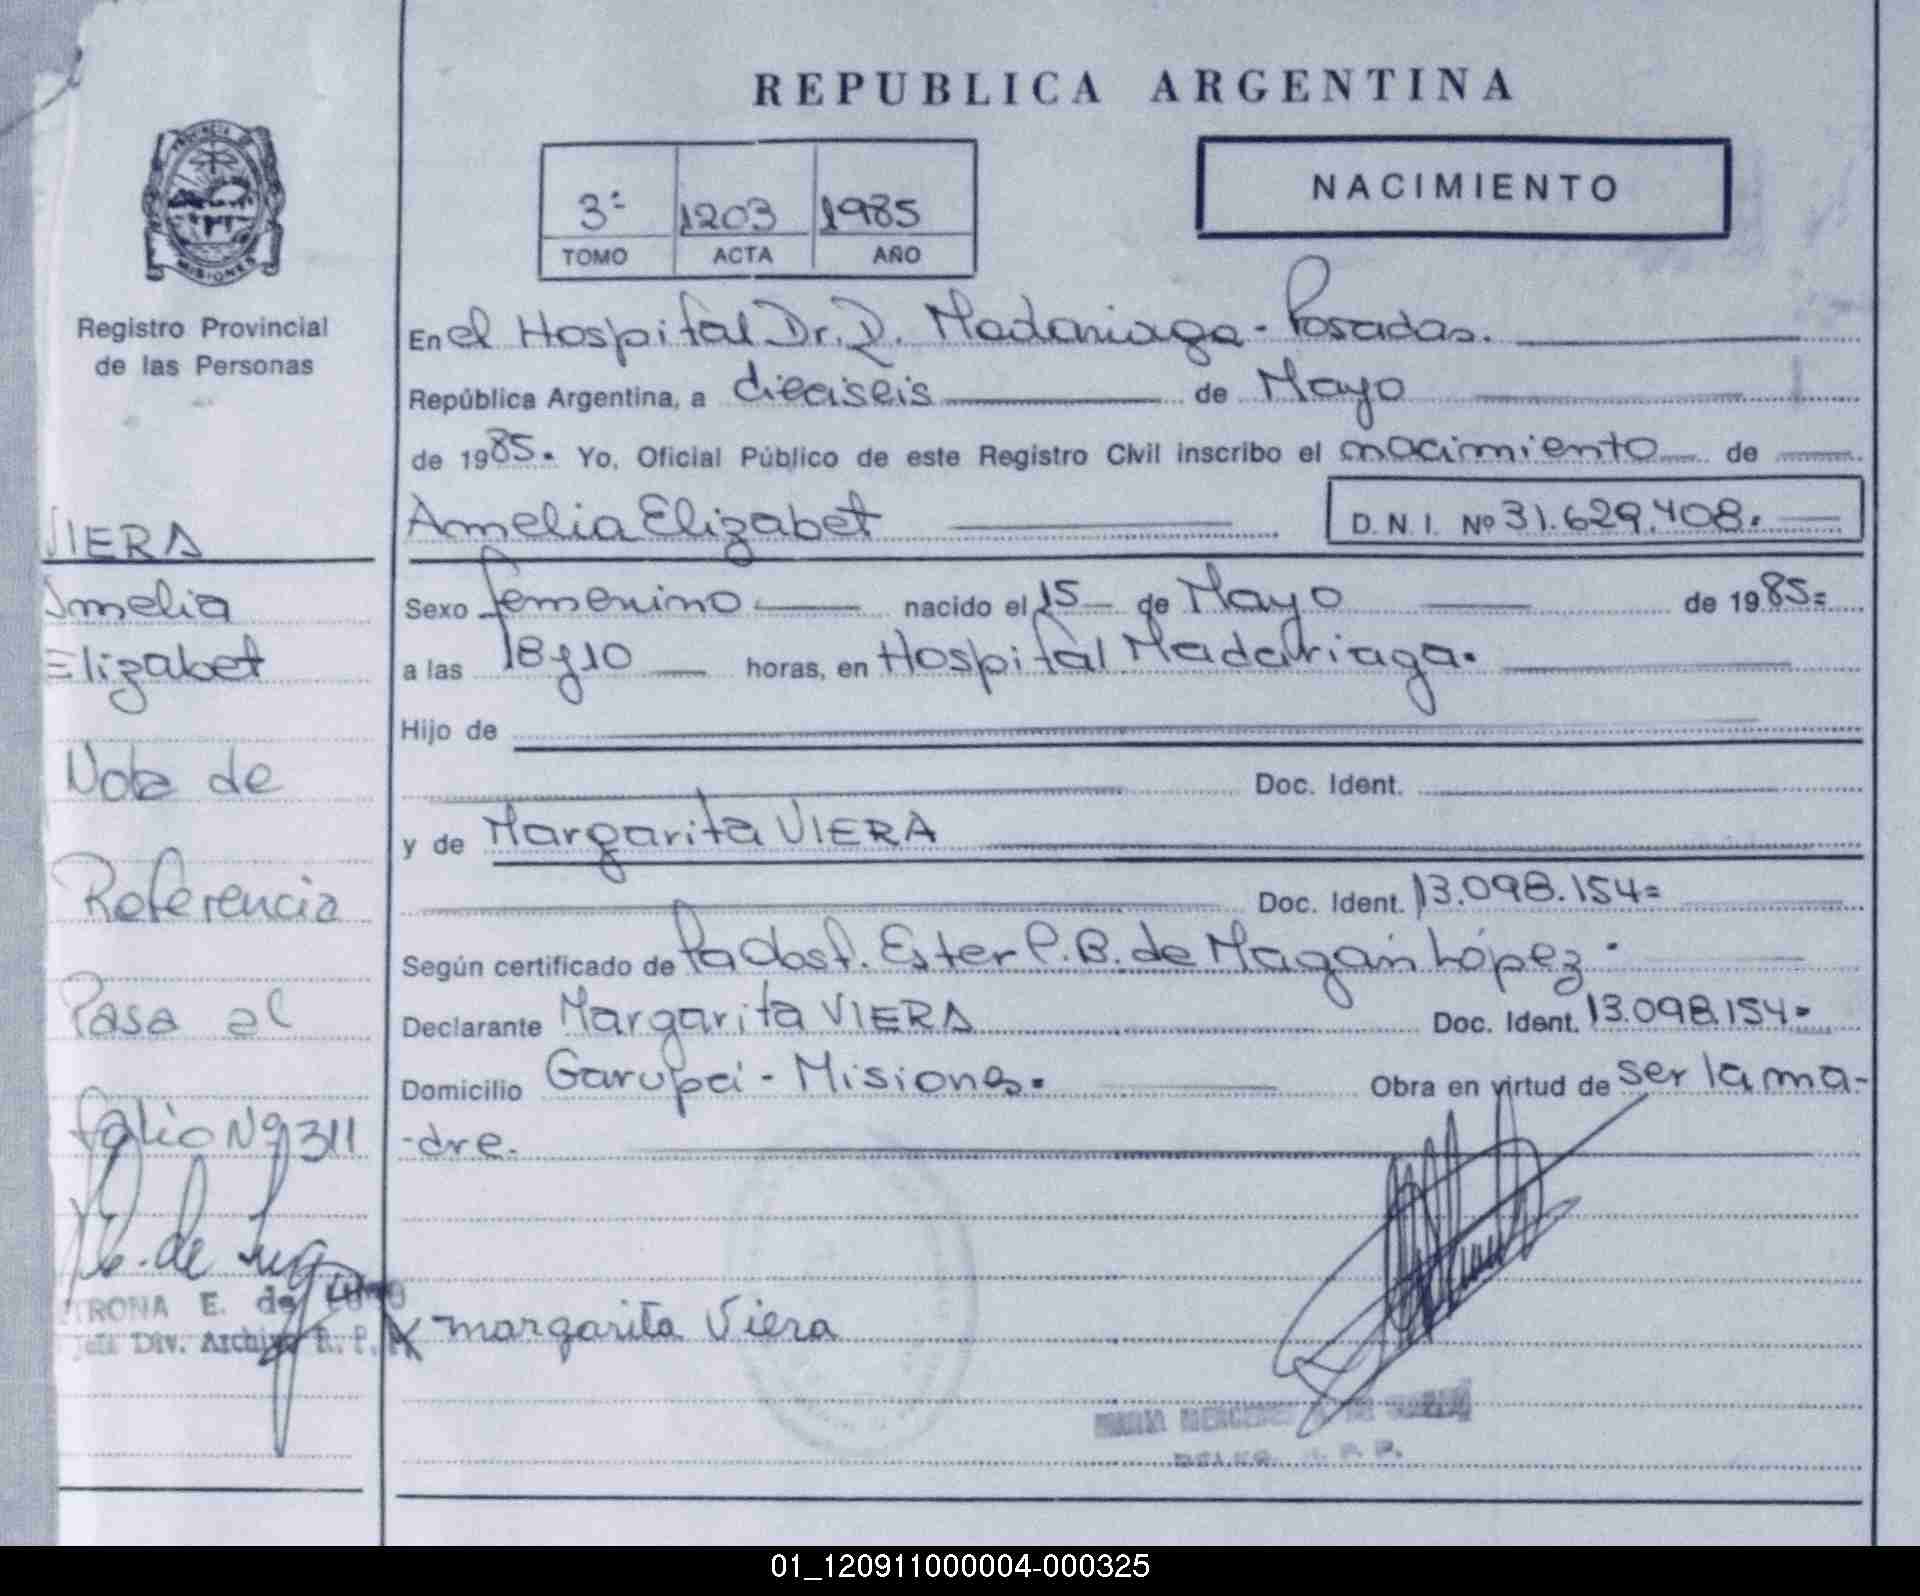 REPUBLICA ARGENTINA
PROVINCIA DE
MISIONES
Registro Provincial
de las Personas
3º 1203 1985
TOMO ACTA AÑO
NACIMIENTO
En el Hospital Dr. R. Madariaga - Posadas.
República Argentina, a dieciseis de Mayo
de 1985. Yo, Oficial Público de este Registro Civil inscribo el nacimiento de
Amelia Elizabet
D. N. I. Nº 31.629.408.
Sexo femenino nacido el 15 de Mayo de 1985=
a las 18 y 10 horas, en Hospital Madariaga.
Hijo de
Doc. Ident.
y de Margarita VIERA
Doc. Ident. 13.098.154=
Según certificado de la Obst. Ester P.B. de Magan López.
Declarante Margarita VIERA Doc. Ident. 13.098.154=
Domicilio Garupá - Misiones. Obra en virtud de ser la ma-
-dre.
margarita Viera
VIERA
Amelia
Elizabet
Nota de
Referencia
Pasa al
folio Nº 311
E. de
Jefa Div. Archivo R. P. P.
MARIA MERCEDES
R. P. P.
01_120911000004-000325